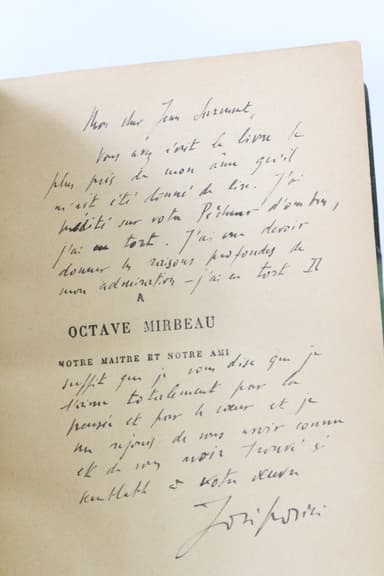 Mon cher Jean Sarment,
vous avez écrit le livre le
plus près de mon âme qu'il
m'ait été donné de lire. J'ai
médité sur votre Pêcheur d'ombres,
j'ai eu tort. J'ai cru devoir
donner les raisons profondes de
mon admiration – j'ai eu tort Il
A
OCTAVE MIRBEAU
NOTRE MAITRE ET NOTRE AMI
suffit que je vous dise que je
t'aime totalement par la
pensée et par le cœur et je
me réjouis de vous avoir connu
et de vous avoir trouvé si
semblable à votre œuvre